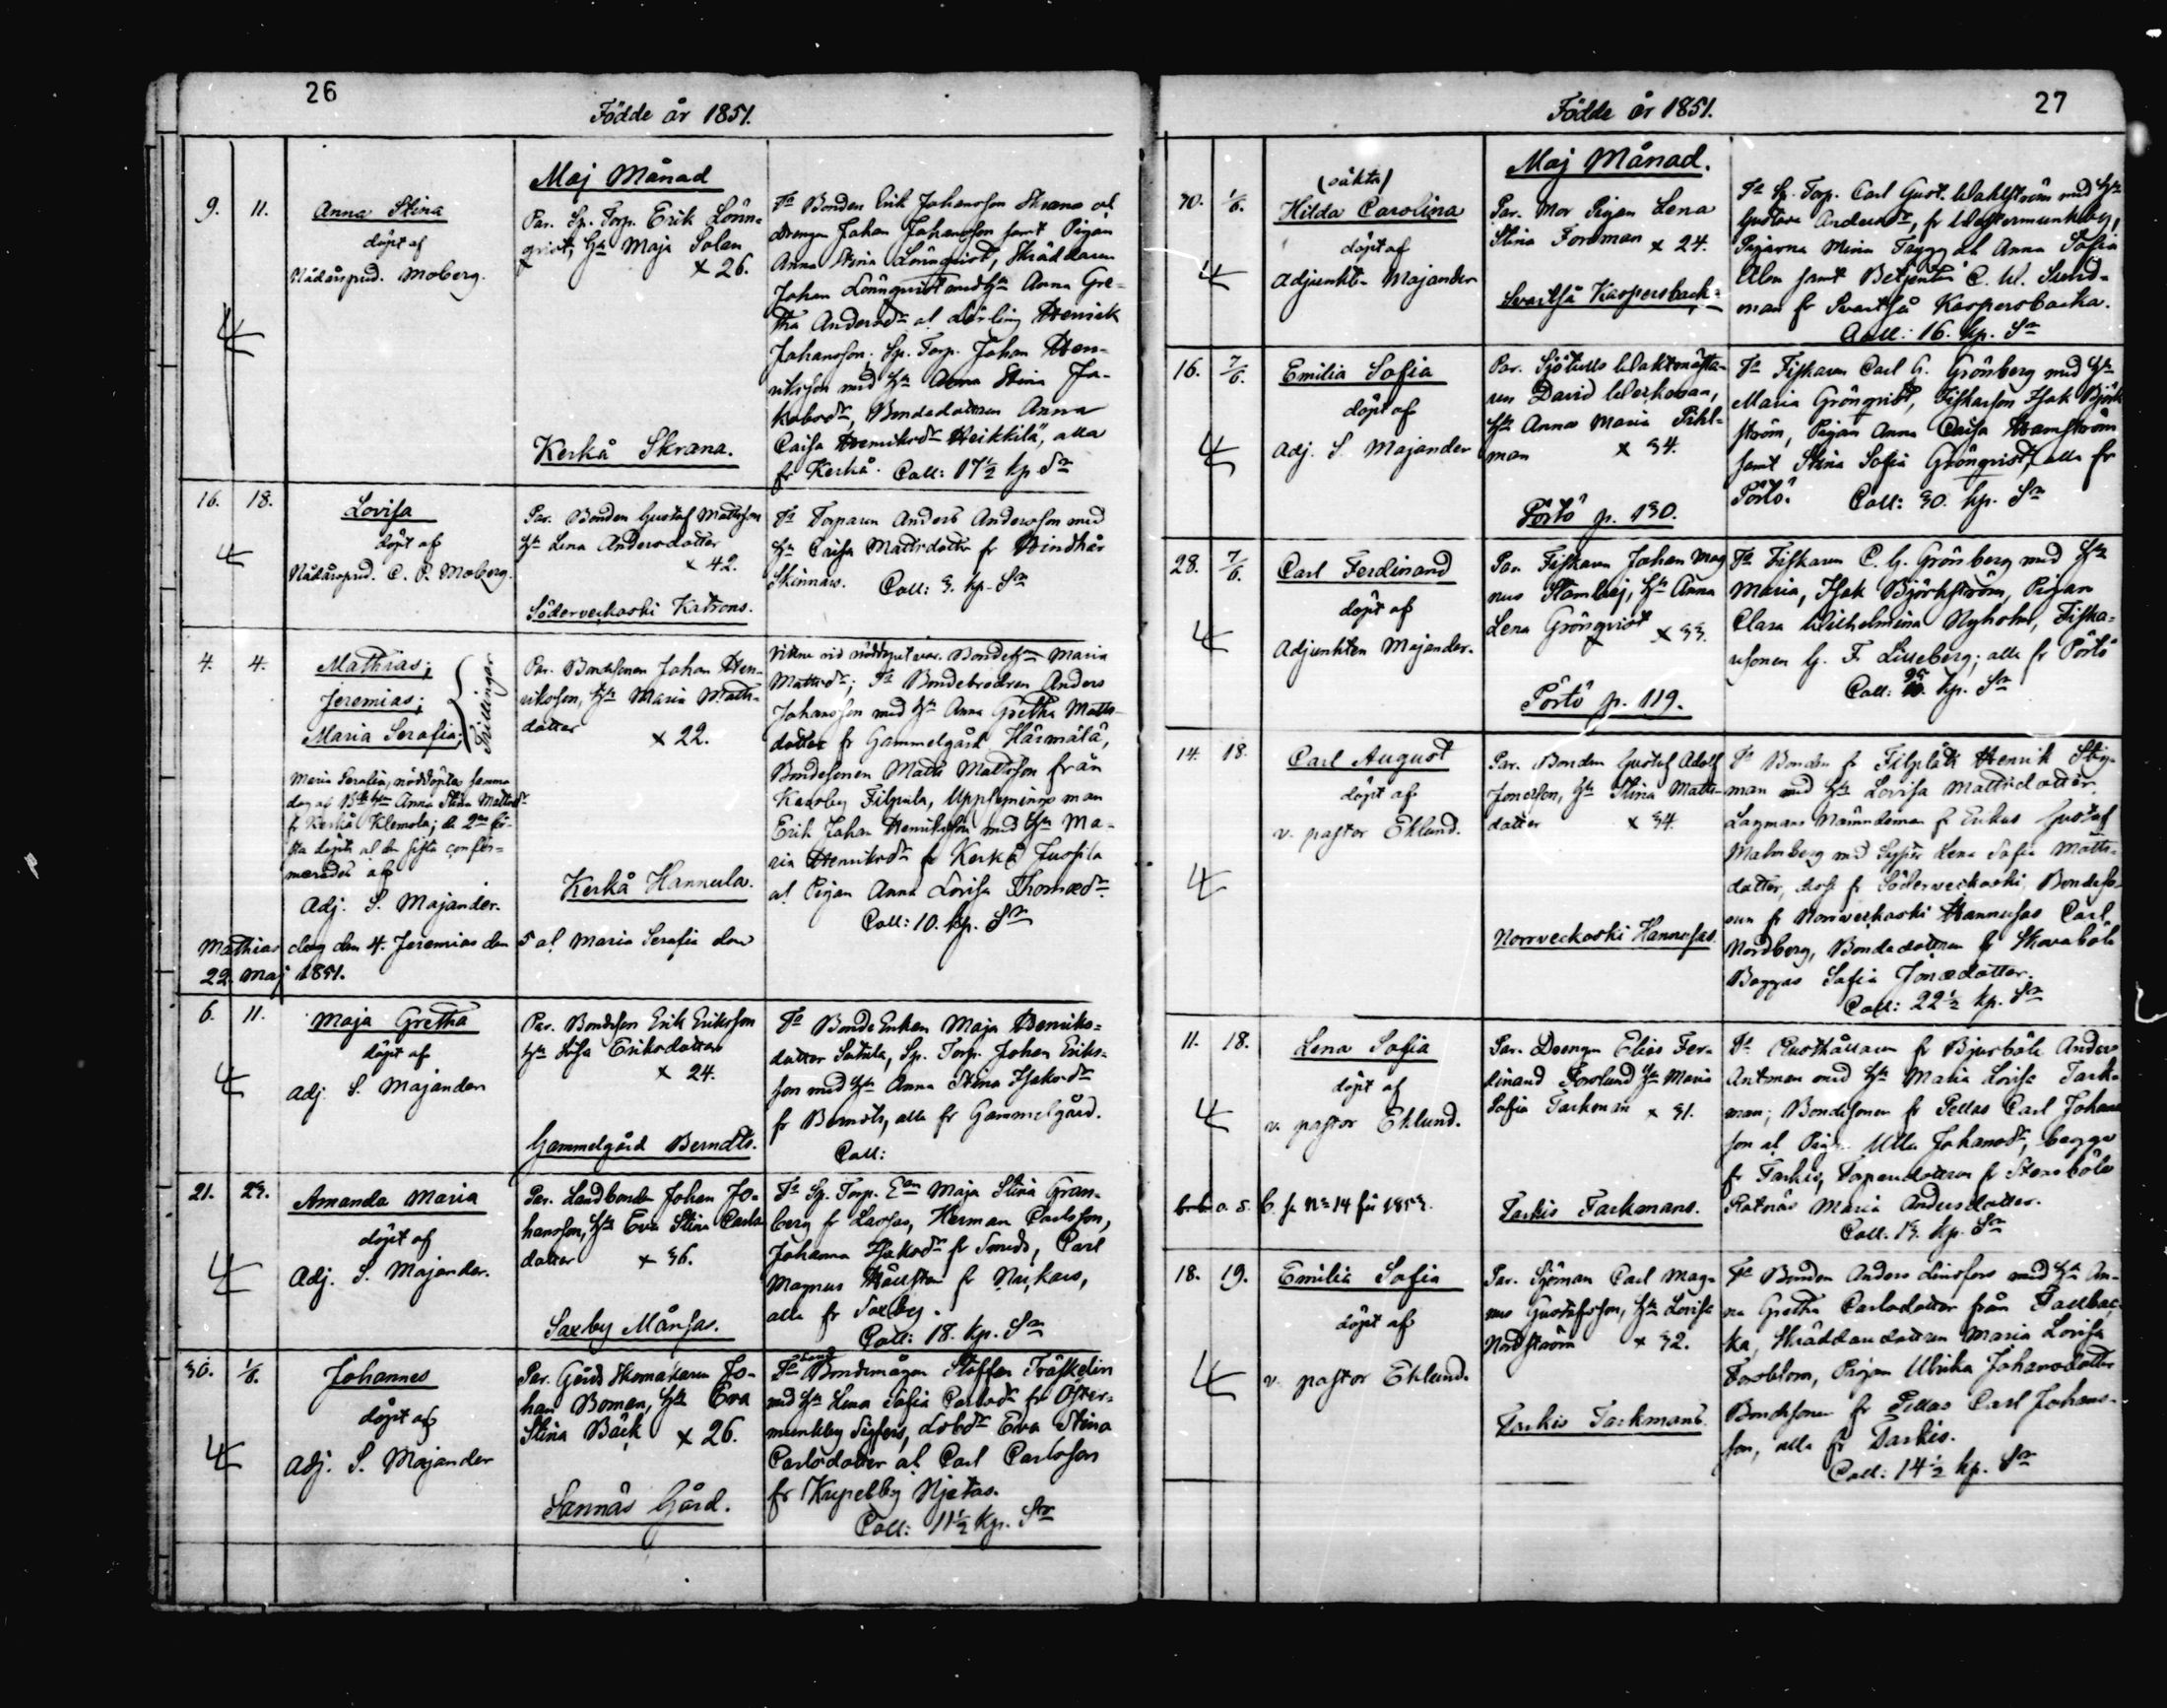 26
Födde år 1851.
Maj Månad
9. 11.
Anna Stina
döpt af
Nådårspred. Moberg.
Par. Sp. Torp. Erik Lönn-
qvist, Hu Maja Salen
x 26.
Kerkå Skrana.
Fa Bonden Erik Johansson Skrana och
drengen Johan Johansson samt Pigan
Anna Stina Lönnqvist, Skräddaren
Johan Lönnqvist med Hu Anna Gre-
tha Andersdr och Lärling Henrik
Johansson; Sp. Torp. Johan Hen-
riksson med Hu Anna Stina Ja-
kobsdr, Bondedottren Anna
Caisa Henriksdr Heikkilä, alla
fr Kerkå. Coll: 17½ kp Sr
16. 18.
Lovisa
döpt af
Nådårspred. C. P. Moberg.
Par. Bonden Gustaf Mattsson
Hu Lena Andersdotter
x 42.
Söderveckoski Katrons.
Fa Torparen Anders Andersson med
Hu Caisa Mattsdotter fr Hindhår
Skinnars. Coll: 3. kp. Sr
4. 4.
Mathias;
Jeremias;
Maria Serafia;
Trillingar
Maria Serafia, nöddöptes samma
dag af Anna Stina Mattsdr
fr Kerkå Klemola; de 2ne för-
sta döpte och den sista confir-
merades af
Adj. S. Majander.
Mathias dog den 4. Jeremias den 5 och Maria Serafia den
22. Maj 1851.
Par. Bondesonen Johan Hen-
riksson, Hu Maria Matts-
dotter
x 22.
Kerkå Hannula.
Vittne vid nöddopet var. Bondehu Maria
Mattsdr; Fa Bondebrodren Anders
Johansson med Hu Anna Gretha Matts-
dotter fr Gammelgård Härmälä,
Bondesonen Matts Mattsson från
Karsby Filpula, Uppsyningsman
Erik Johan Henriksson med Hu Ma-
ria Henriksdr fr Kerkå Jussila
och Pigan Anna Lovisa Thomædr
Coll: 10. kp. Sr
6. 11.
Maja Gretha
döpt af
Adj. S. Majander
Par. Bondeson Erik Eriksson
Hu Lisa Eriksdotter
x 24.
Gammelgård Berndts.
Fa Bonde Enkan Maja Henriks-
dotter, Sp. Torp. Johan Eriks-
son med Hu Anna Stina Isaksdr
fr Berndts, alla fr Gammelgård.
Coll:
21. 23.
Amanda Maria
döpt af
Adj. S. Majander.
Par. Landbonden Johan Jo-
hansson, Hu Eva Stina Carls
dotter x 36.
Saxby Månsas.
Fa Sp. Torp. Maja Stina Gran-
berg fr Lassas, Herman Carlsson,
Johanna Isaksdr fr Smeds, Carl
Magnus Hällsten fr
alla fr Saxby.
Coll: 18. kp. Sr
30. 1/6.
Johannes
döpt af
Adj. S. Majander
Par. Gårds Skomakaren Jo-
han Boman, Hu Eva
Stina Bäck x 26.
Sannäs Gård.
Fa Bondemågen Staffan Träskelin
med Hu Lena Sofia Carlsdr fr Öster-
munkby Sigfers, Eva Stina
Carlsdotter och Carl Carlsson
fr Kupelby Njetas.
Coll: 11½ kp. Sr
27
Födde år 1851.
Maj Månad.
30. 1/6.
(oäkta)
Hilda Carolina
döpt af
Adjunkt. Majander
Par. Mor Pigan Lena
Stina Forsman x 24.
Svartså Kaspersback.
Fa Sp. Torp. Carl Gust. Wahlström med Hu
Gustava Andersdr, fr Westermunkby,
Pigorna Mina Tagg och Anna Sofia
Alen samt Betjenten C. W. Sund-
man fr Svartså Kaspersbacka.
Coll: 16. kp. Sr
16. 7/6.
Emilia Sofia
döpt af
Adj. S. Majander
Par. Sjötulls Waktmästa-
ren David Werkosan,
Hu Anna Maria Pihl-
man x 34.
Pörtö p. 130.
Fa Fiskaren Carl G. Grönberg med Hu
Maria Grönqvist, Fiskarson Isak Björk
ström, Pigan Anna Caisa Hamström
samt Stina Sofia Grönqvist, alla fr
Pörtö. Coll: 30. kp. Sr
28. 7/6.
Carl Ferdinand
döpt af
Adjunkten Majander.
Par. Fiskaren Johan Mag
nus Stambej, Hu Anna
Lena Grönqvist x 33.
Pörtö p. 119.
Fa Fiskaren C. G. Grönberg med Hu
Maria, Isak Björkström, Pigan
Clara Wilhelmina Nyholm, Fiska-
resonen G. F. Liseberg; alla fr Pörtö
Coll: kp. Sr
14. 18.
Carl August
döpt af
v. pastor Eklund.
Par. Bonden Gustaf Adolf
Jonasson, Hu Stina Matts-
dotter x 34.
Norrveckoski Hannusas.
Fa Bonden fr Filpläts Henrik Stig-
man med Hu Lovisa Mattsdotter,
Lagmans Nämndeman fr Erikus Gustaf
Malmberg med Syster Lena Sofia Matts-
dotter, fr Söderveckoski, Bondeso-
nen fr Norrveckoski Hannusas Carl
Nordberg, Bondedottren fr Skavaböle
Boggas Sofia Jonædotter.
Coll: 22½ kp. Sr
11. 18.
Lena Sofia
döpt af
v. pastor Eklund.
o. s. b. se No 14 för 1853.
Par. Drengen Elias Fer-
dinand Forslund Hu Maria
Sofia Tarkman x 31.
Tarkis Tarkmans.
Fa Rusthållaren fr Bjurböle Anders
Antman med Hu Maria Lovisa Tark-
man; Bondesonen fr Pellas Carl Johans
son och Pigan Ulla Johansdr, begge
fr Tarkis, Torparedottren fr Stensböle
Ratnäs Maria Andersdotter.
Coll. 13. kp. Sr
18. 19.
Emilia Sofia
döpt af
v. pastor Eklund.
Par. Sjöman Carl Mag-
nus Gustafsson, Hu Lovisa
Nordström x 32.
Tarkis Tarkmans.
Fa Bonden Anders Linofors med Hu An-
na Gretha Carlsdotter från Tallbac-
ka, Skräddaredottren Maria Lovisa
Forsblom, Pigan Ulrika Johansdotter
Bondesonen fr Pellas Carl Johans-
son, alla fr Tarkis.
Coll: 14½ kp. Sr